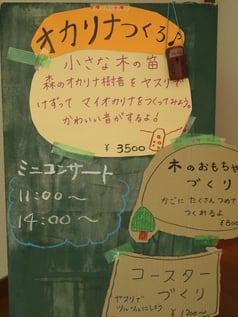 オカリナつくろ♪
小さな木の笛
森のオカリナ樹音をヤスリで
けずって マイオカリナをつくってみよう。
かわいい音がするよ!
¥3500
ミニコンサート
11:00～
14:00～
木のおもちゃ
づくり
かごに たくさんつめて
つくれるよ
コースター
づくり
ヤスリで